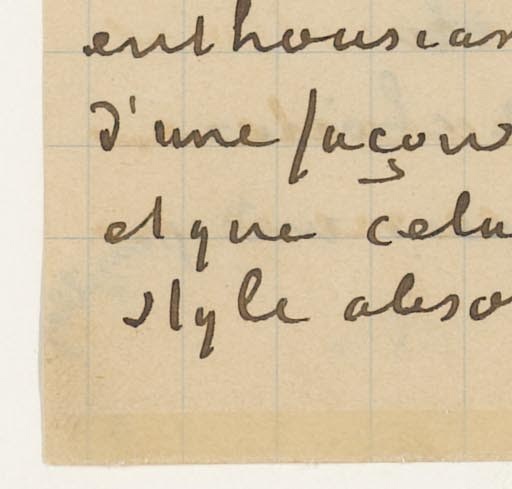 enthousias
d'une façon
et que celu
style abso